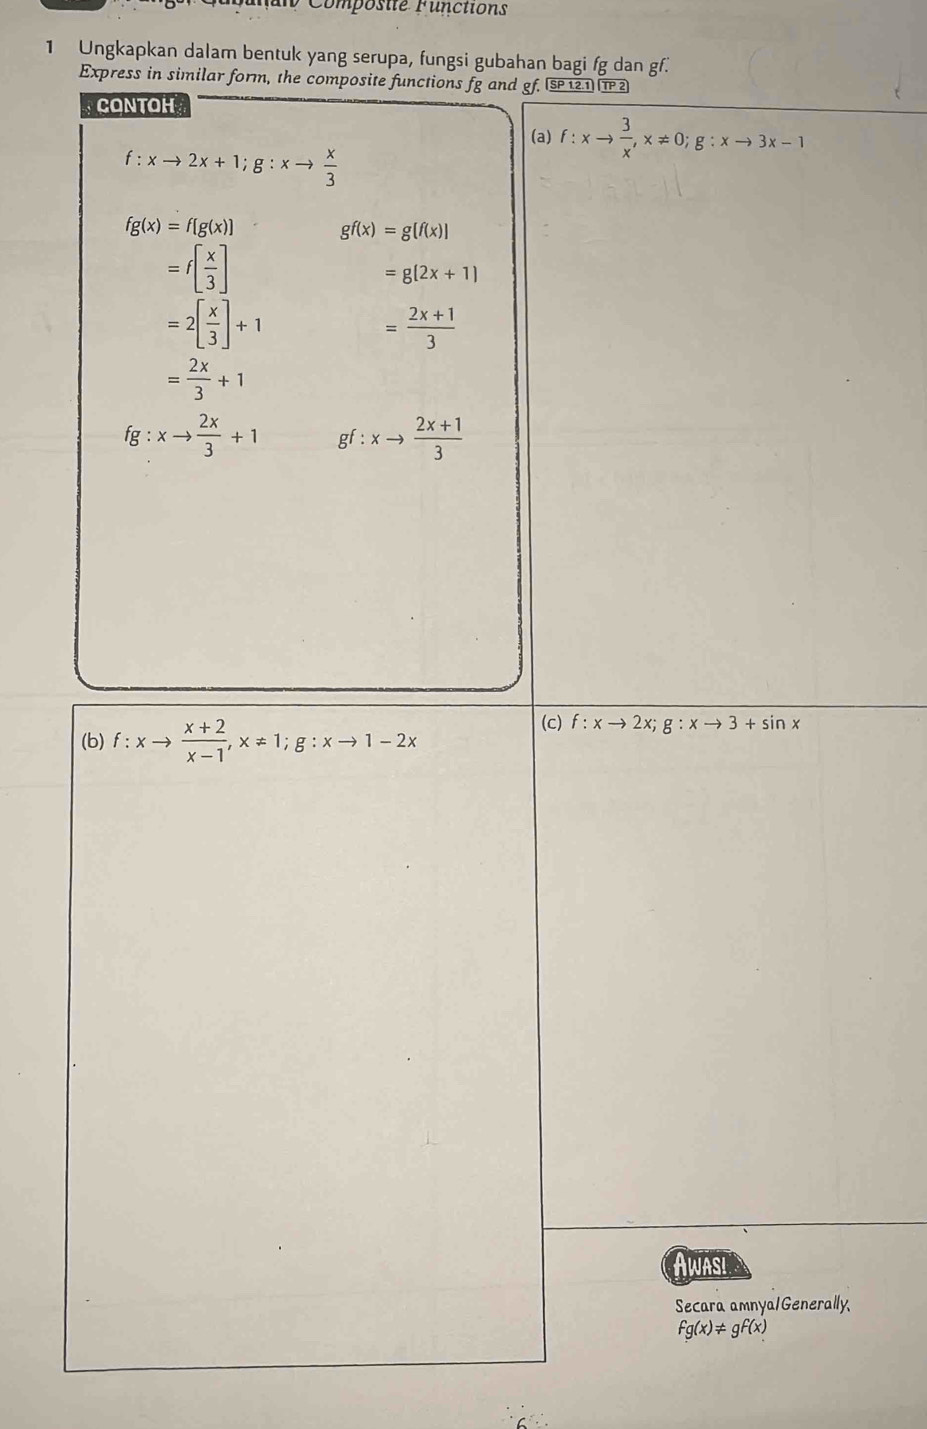 Composite Functions
1 Ungkapkan dalam bentuk yang serupa, fungsi gubahan bagi fg dan gf.
Express in similar form, the composite functions fg and gf. SP 1.2.1 TP 2
CONTOH
f : x → 2x + 1; g : x → x/3
fg(x) = f[g(x)]
= f[x/3]
= 2[x/3] + 1
= 2x/3 + 1
fg : x → 2x/3 + 1
gf(x) = g[f(x)]
= g[2x + 1]
= (2x + 1)/3
gf : x → (2x + 1)/3
(a) f : x → 3/x, x ≠ 0; g : x → 3x – 1
(b) f : x → (x + 2)/(x – 1), x ≠ 1; g : x → 1 – 2x
(c) f : x → 2x; g : x → 3 + sin x
AWAS!
Secara amnya/Generally,
fg(x) ≠ gf(x)
6